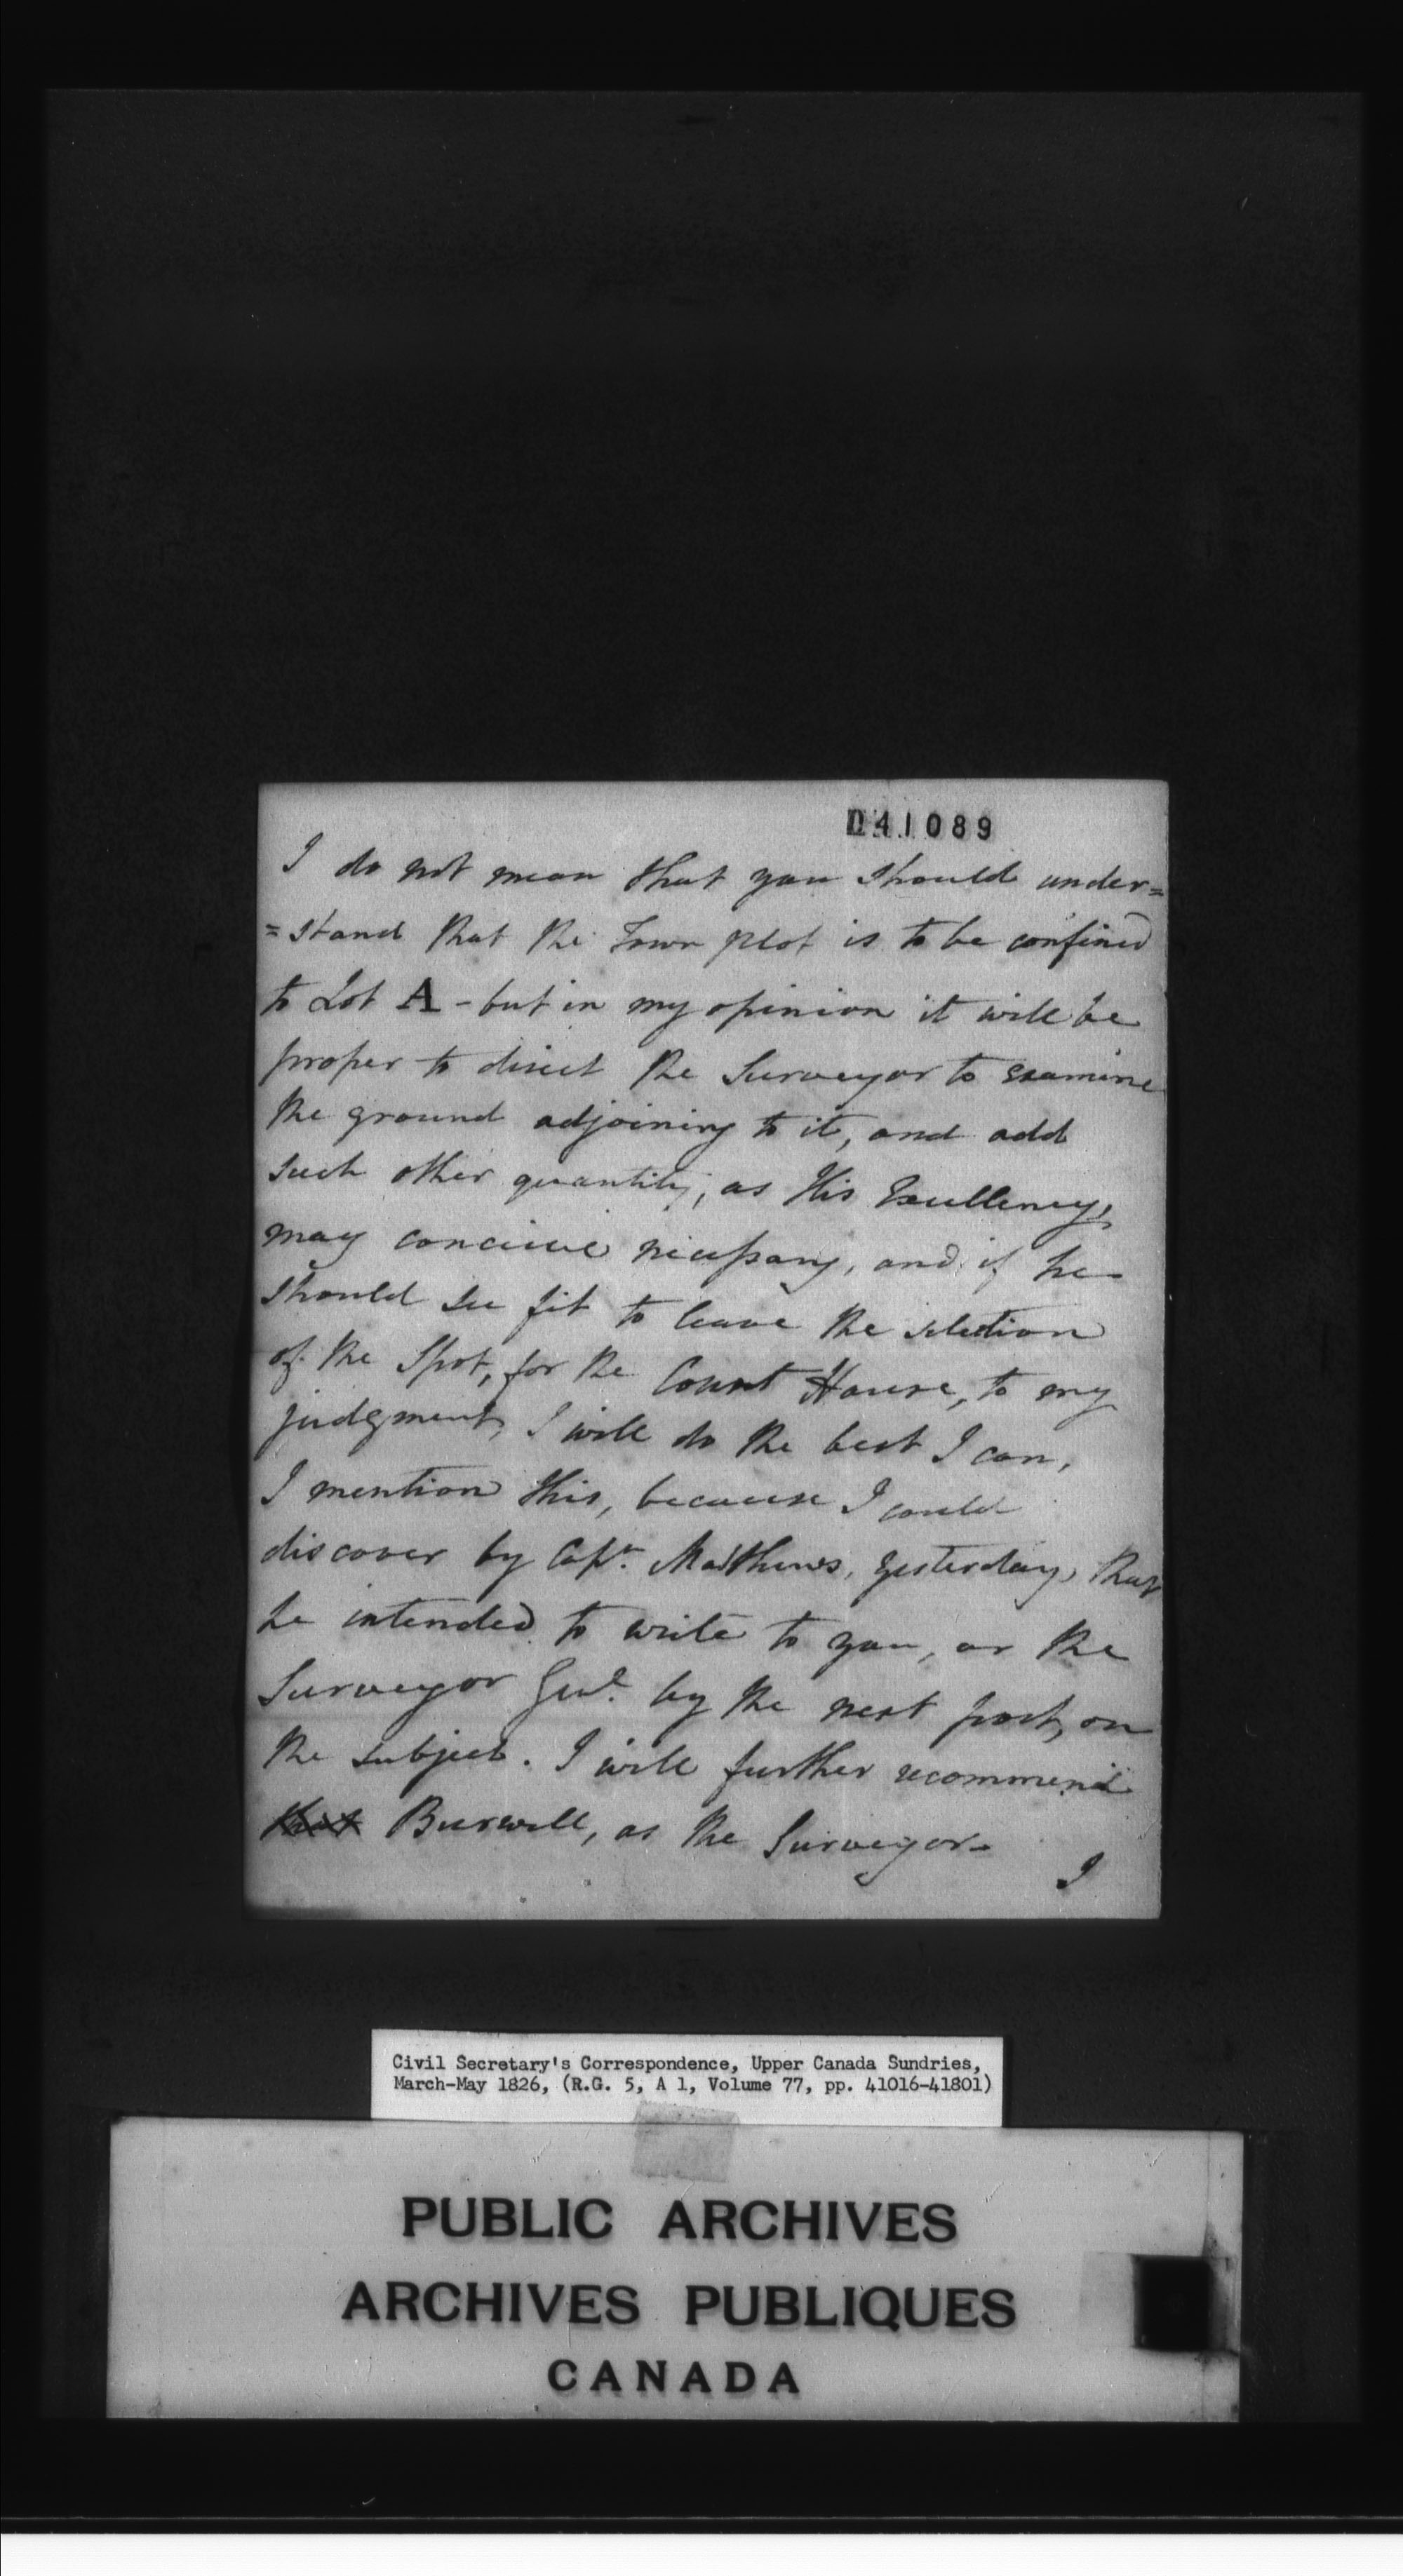 041089
I do not mean that you should under=
=stand that the Town plot is to be confined
to Lot A - but in my opinion it will be
proper to direct the Surveyor to examine
the ground adjoining to it, and add
such other quantity, as His Excellency,
may conceive necessary, and if he
should see fit to leave the selection
of the Spot, for the Court House, to my
judgment, I will do the best I can,
I mention this, because I could
discover by Capt. Matthews, yesterday, that
he intended to write to you, or the
Surveyor Genl. by the next post, on
the subject. I will further recommend
that Burwell, as the Surveyor-
I
Civil Secretary's Correspondence, Upper Canada Sundries,
March-May 1826, (R.G. 5, A 1, Volume 77, pp. 41016-41801)
PUBLIC ARCHIVES
ARCHIVES PUBLIQUES
CANADA